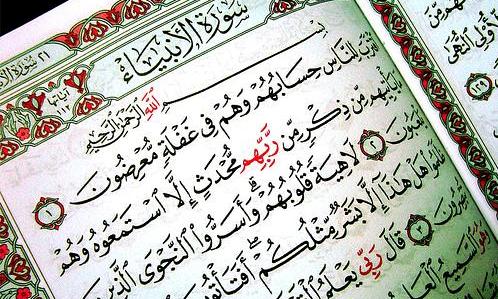 سُورَةُ الْأَنْبِيَاءِ
آياتها ١١٢
بِسْمِ اللَّهِ الرَّحْمَٰنِ الرَّحِيمِ
اقْتَرَبَ لِلنَّاسِ حِسَابُهُمْ وَهُمْ فِي غَفْلَةٍ مُّعْرِضُونَ ١
مَا يَأْتِيهِم مِّن ذِكْرٍ مِّن رَّبِّهِم مُّحْدَثٍ إِلَّا اسْتَمَعُوهُ وَهُمْ
يَلْعَبُونَ ٢ لَاهِيَةً قُلُوبُهُمْ وَأَسَرُّوا النَّجْوَى الَّذِينَ
ظَلَمُوا هَلْ هَٰذَا إِلَّا بَشَرٌ مِّثْلُكُمْ أَفَتَأْتُونَ
تُبْصِرُونَ ٣ قَالَ رَبِّي يَعْلَمُ
السَّمِيعُ